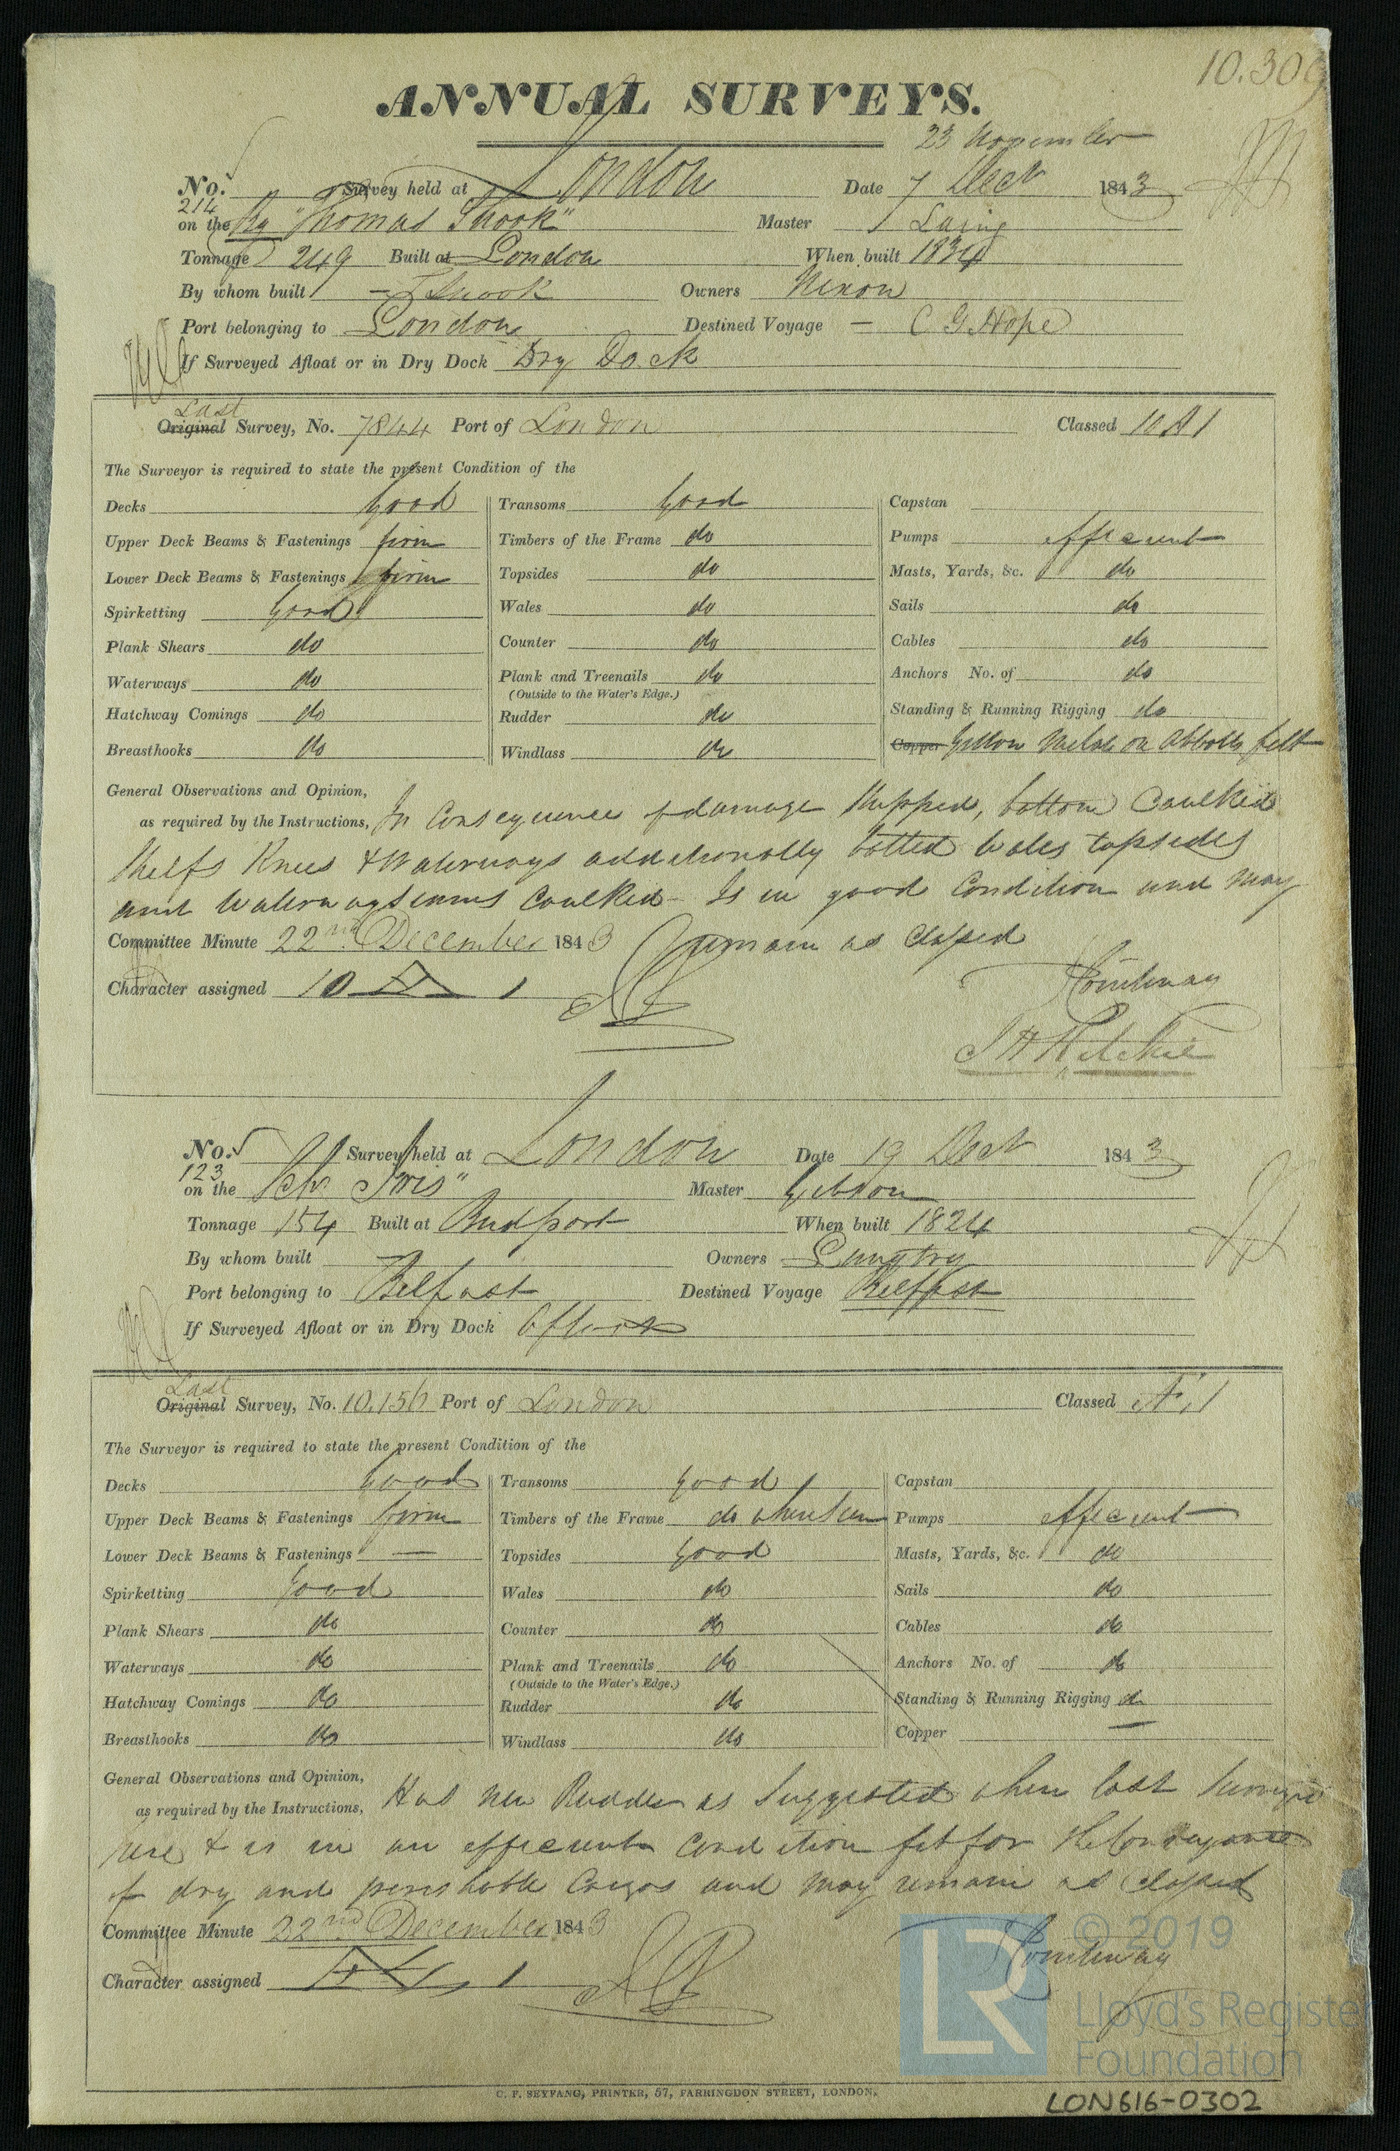 10.309
ANNUAL SURVEYS.
23 November
No. Survey held at London Date 7 Decr 1843
214
on the Bg "Thomas Snook" Master Laing
Tonnage 249 Built at London When built 1834
By whom built T Snook Owners Nixon
Port belonging to London Destined Voyage — C G Hope
If Surveyed Afloat or in Dry Dock Dry Dock
Last
Original Survey, No. 7844 Port of London Classed 10 A 1
The Surveyor is required to state the present Condition of the
Decks Good Transoms Good Capstan
Upper Deck Beams & Fastenings firm Timbers of the Frame do Pumps efficient
Lower Deck Beams & Fastenings firm Topsides do Masts, Yards, &c. do
Spirketting Good Wales do Sails do
Plank Shears do Counter do Cables do
Waterways do Plank and Treenails do Anchors No. of do
(Outside to the Water's Edge.)
Hatchway Comings do Rudder do Standing & Running Rigging do
Breasthooks do Windlass do Copper Yellow Metal on Abbotts felt
General Observations and Opinion,
as required by the Instructions, In Consequence of damage Stripped, bottom Caulked
Shelfs Knees & Waterways additionally bolted Wales topsides
and Waterway seams Caulked - Is in good Condition and may
Committee Minute 22nd December 1843 remain as Classed
Character assigned 10 A 1
J H Ritchie
No. Survey held at London Date 19 Decr 1843
123
on the Schr "Iris" Master Gibson
Tonnage 154 Built at Bridport When built 1824
By whom built Owners Langtry
Port belonging to Belfast Destined Voyage Belfast
If Surveyed Afloat or in Dry Dock Afloat
Last
Original Survey, No. 10.156 Port of London Classed Æ 1
The Surveyor is required to state the present Condition of the
Decks Good Transoms Good Capstan
Upper Deck Beams & Fastenings firm Timbers of the Frame do where seen Pumps efficient
Lower Deck Beams & Fastenings — Topsides Good Masts, Yards, &c. do
Spirketting Good Wales do Sails do
Plank Shears do Counter do Cables do
Waterways do Plank and Treenails do Anchors No. of do
(Outside to the Water's Edge.)
Hatchway Comings do Rudder do Standing & Running Rigging do
Breasthooks do Windlass do Copper —
General Observations and Opinion,
as required by the Instructions, Has new Rudder as Suggested when last Surveyed
here & is in an efficient Condition fit for the Conveyance
of dry and perishable Cargos and may remain as Classed
Committee Minute 22nd December 1843
Character assigned Æ 1
© 2019
LR
Lloyd's Register
Foundation
C. F. SEYFANG, PRINTER, 57, FARRINGDON STREET, LONDON.
LON616-0302